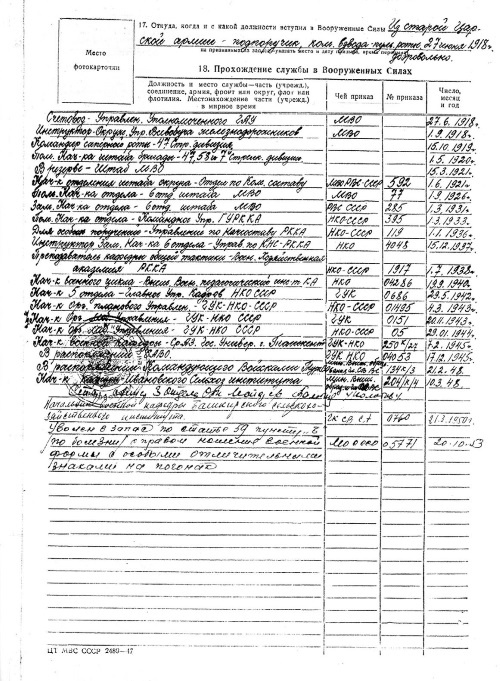 Место
фотокарточки
17. Откуда, когда и с какой должности вступил в Вооруженные Силы Из старой Цар-
ской армии - подпоручик, ком. взвода пулем. роты. 27 июня 1918 г.
добровольно.
18. Прохождение службы в Вооруженных Силах
Должность и место службы—часть (учрежд.), соединение, армия, фронт или округ, флот или флотилия. Местонахождение части (учрежд.) в мирное время Чей приказ № приказа Число, месяц и год
Счетовод - Управлен. Уполномоченного ГАУ МВО 27.6.1918.
Инструктор - Окруж. Упр. Всевобуча железнодорожников МВО 1.9.1918.
Командир саперной роты - 47 Стр. дивизия 15.10.1919.
Пом. Нач-ка штаба бригады - 47, 58 и 7 Стрелк. дивизии 1.5.1920.
В резерве - Штаб МВО 15.3.1921.
Нач-к отделения штаба округа - Отдел по Ком. составу 592 1.6.1921.
Пом. Нач-ка отдела - 6 отд штаба МВО МВО 77 1.9.1926.
Зам. Нач-ка отдела - 6 отд. штаба МВО РВС СССР 285 1.3.1931.
Пом. Нач-ка отдела - Командное Упр. ГУРККА НКО-СССР 395 1.3.1933.
Для особых поручений - Управление по Начсоставу РККА НКО-СССР 119 1.1.1936.
Инструктор Зам. Нач-ка 6 отдела - Управ по КНС-РККА НКО 4048 15.12.1937.
Преподаватель кафедры общей тактики - Воен. Хозяйственная
академия РККА НКО-СССР 1917 1.7.1938.
Нач-к военного цикла - Высш. Воен. педагогический инст КА НКО 04286 13.9.1940.
Нач-к 3 отдела - Главное Упр. Кадров НКО СССР ГУК 0686 29.5.1942.
Нач-к Орг. планового Управлен. - ГУК-НКО-СССР НКО-СССР 01495 4.3.1943.
Нач-к Орг. Управления - ГУК НКО СССР ГУК 0151 20.11.1943.
Нач-к Орг. Управления - ГУК-НКО СССР НКО-СССР 05 29.01.1944.
Нач-к Военной Кафедры - Ср. Аз. Гос. Универ. г. Ташкент ГУК-НКО 7.2.1945.
В распоряжении ГУК НКО 04053 17.12.1945.
В распоряжении Командующего Войсками 21.2.48.
Нач-к кафедры Ивановского Сельхоз института 204/к/4 10.3.48.
Начальник военной кафедры Башкирского сельско-
хозяйственного института. 0760 31.3.1950 г.
Уволен в запас по статье 59 пункт
по болезни с правом ношения военной МО СССР 05771 20.10.53
формы с особыми отличительными
знаками на погонах
ЦТ МВС СССР 2480—47